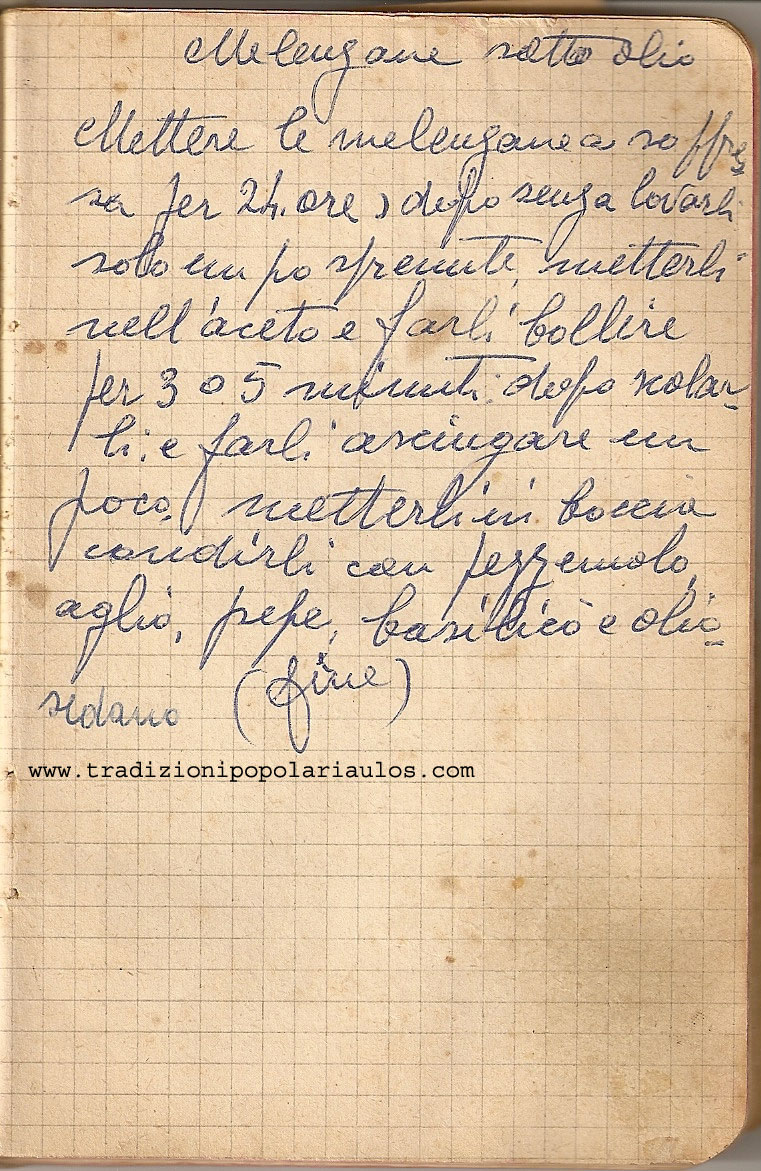 Melengane sotto olio
Mettere le melengane a soffres
sa per 24. ore, dopo senza lovarli
solo un po spremute, metterli
nell'aceto e farli bollire
per 3 o 5 minuti: dopo scolar-
li: e farli asciugare un
poco, metterli in boccia
condirli con pezzemolo,
aglio, pepe, basilicò e olio-
sedano (fine)
www.tradizionipopolariaulos.com